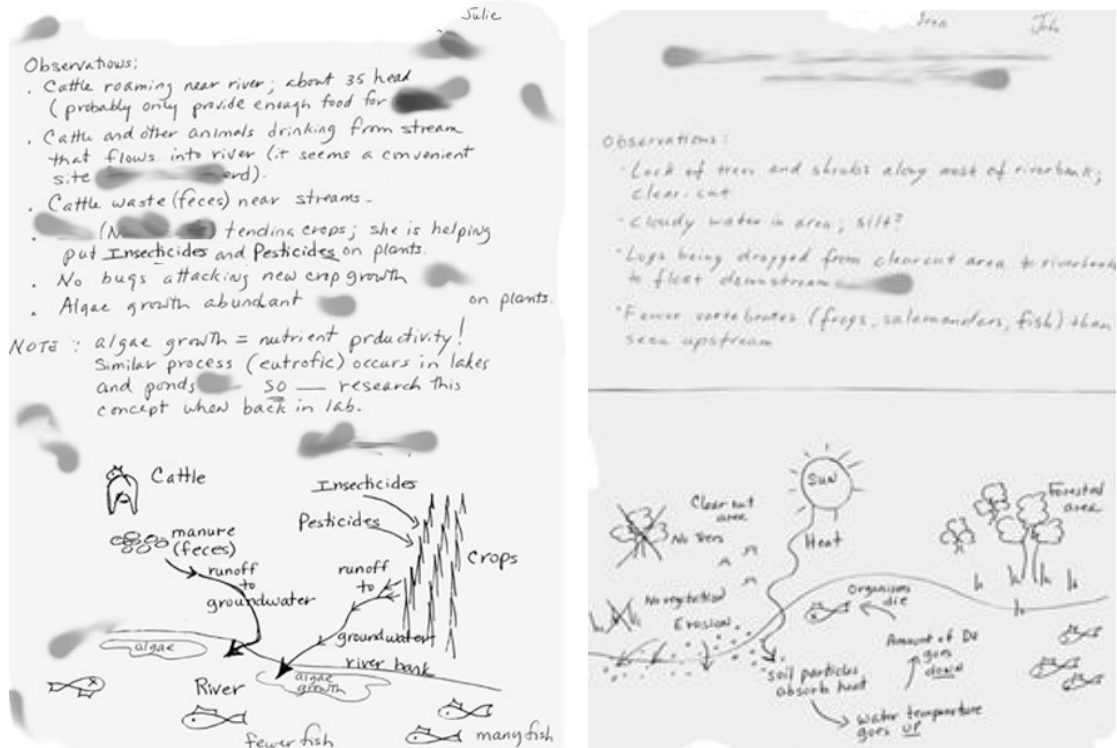 Julie
Observations:
. Cattle roaming near river; about 35 head
(probably only provide enough food for
. Cattle and other animals drinking from stream
that flows into river (it seems a convenient
site
. Cattle waste (feces) near streams.
. tending crops; she is helping
put Insecticides and Pesticides on plants.
. No bugs attacking new crop growth
. Algae growth abundant on plants.
NOTE: algae growth = nutrient prductivity!
Similar process (eutrofic) occurs in lakes
and ponds SO — research this
concept when back in lab.
Cattle
manure
(feces)
runoff
to
groundwater
Insecticides
Pesticides
Crops
runoff
to
groundwater
river bank
algae
algae
growth
River
fewer fish
many fish
Observations:
· Lack of trees and shrubs along most of riverbank;
clear-cut
· Cloudy water in area; silt?
· Logs being dragged from clearcut area to riverbank
to float downstream
· Fewer vertebrates (frogs, salamanders, fish) than
seen upstream
Sun
Heat
Clear cut
area
No Trees
No vegitation
Erosion
Forested
area
Organisms
die
Amount of DO
goes
down
soil particles
absorb heat
water temperature
goes UP